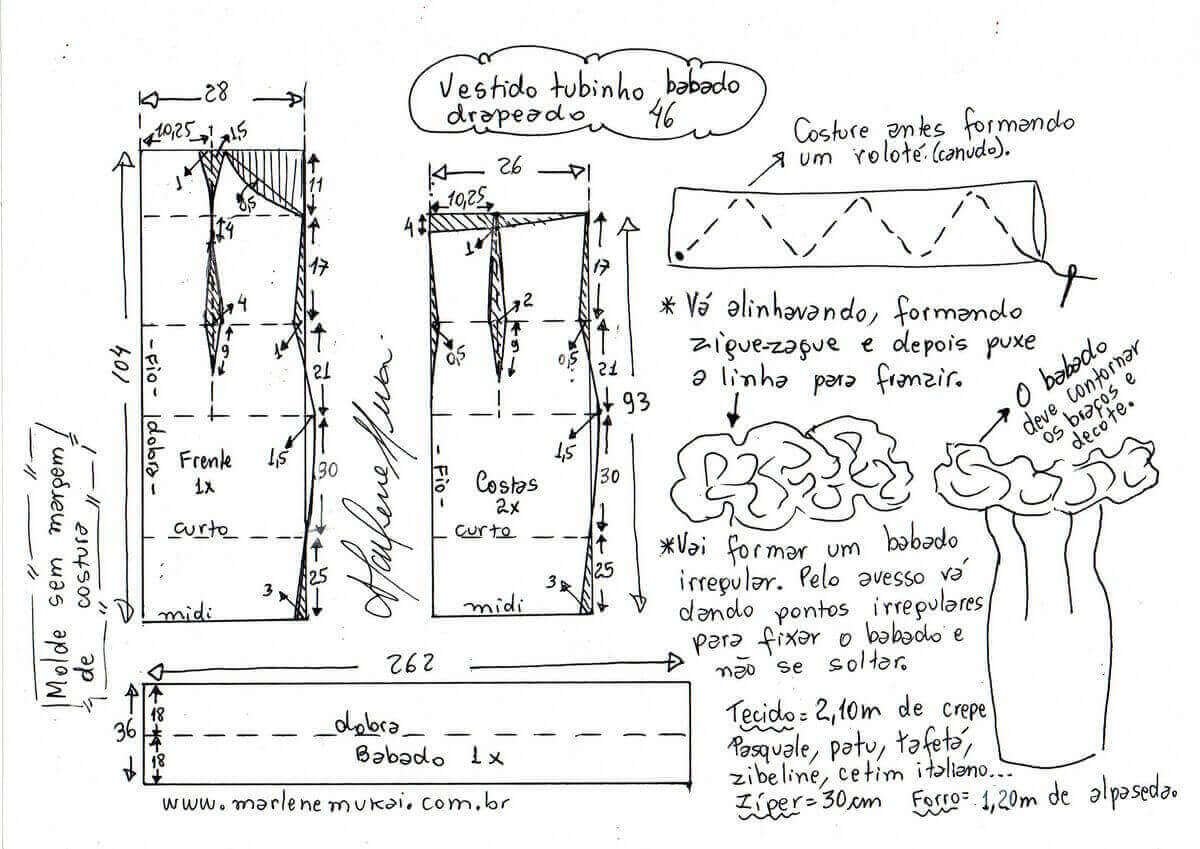 Vestido tubinho babado
drapeado 46
28
10,25
1,5
1
0,5
11
4
17
4
1
9
21
104
- Fio - dobra -
Frente
1x
1,5
30
curto
25
3
midi
Molde sem margem
de costura
Marlene Mukai.
26
10,25
4
1
17
2
0,5
0,5
9
21
93
- Fio -
Costas
2x
1,5
30
curto
25
3
midi
262
36
18
18
dobra
Babado 1x
www.marlenemukai.com.br
Costure antes formando
um roloté.(canudo).
* Vá alinhavando, formando
zigue-zague e depois puxe
a linha para franzir.
O babado
deve contornar
os braços e
decote.
*Vai formar um babado
irregular. Pelo avesso vá
dando pontos irregulares
para fixar o babado e
não se soltar.
Tecido= 2,10m de crepe
Pasquale, patu, tafetá,
zibeline, cetim italiano...
Zíper= 30cm Forro= 1,20m de alpaseda.